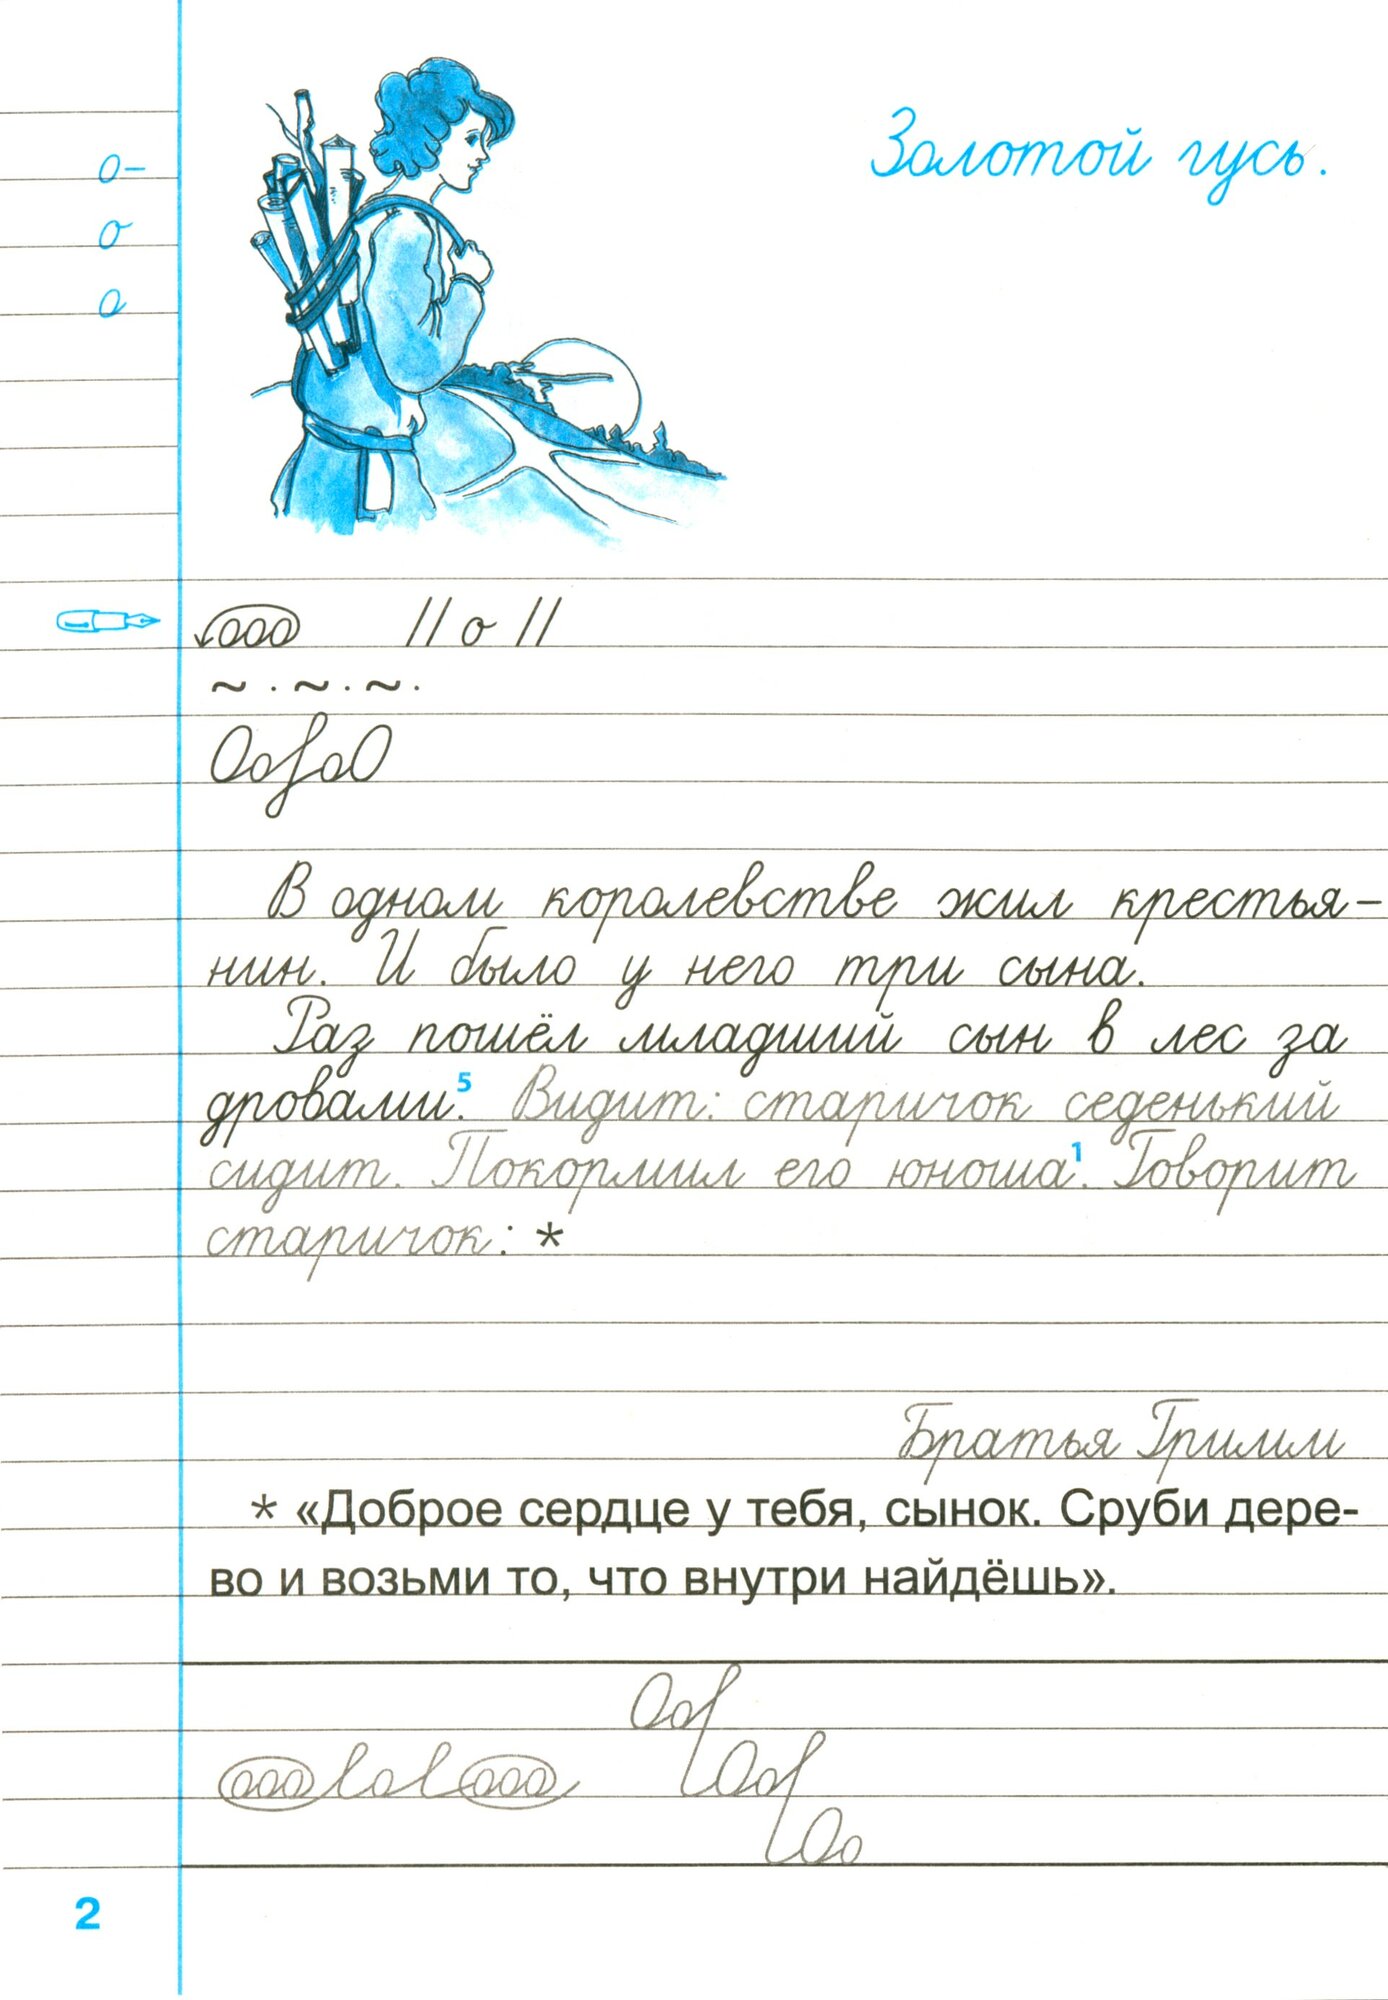 Золотой гусь.
о-
о
о
ооо // о //
~ . ~ . ~ .
ОоſоО
В одном королевстве жил крестья-
нин. И было у него три сына.
Раз пошёл младший сын в лес за
дровами⁵. Видит: старичок седенький
сидит. Покормил его юноша¹. Говорит
старичок: *
Братья Гримм
* «Доброе сердце у тебя, сынок. Сруби дере-
во и возьми то, что внутри найдёшь».
2